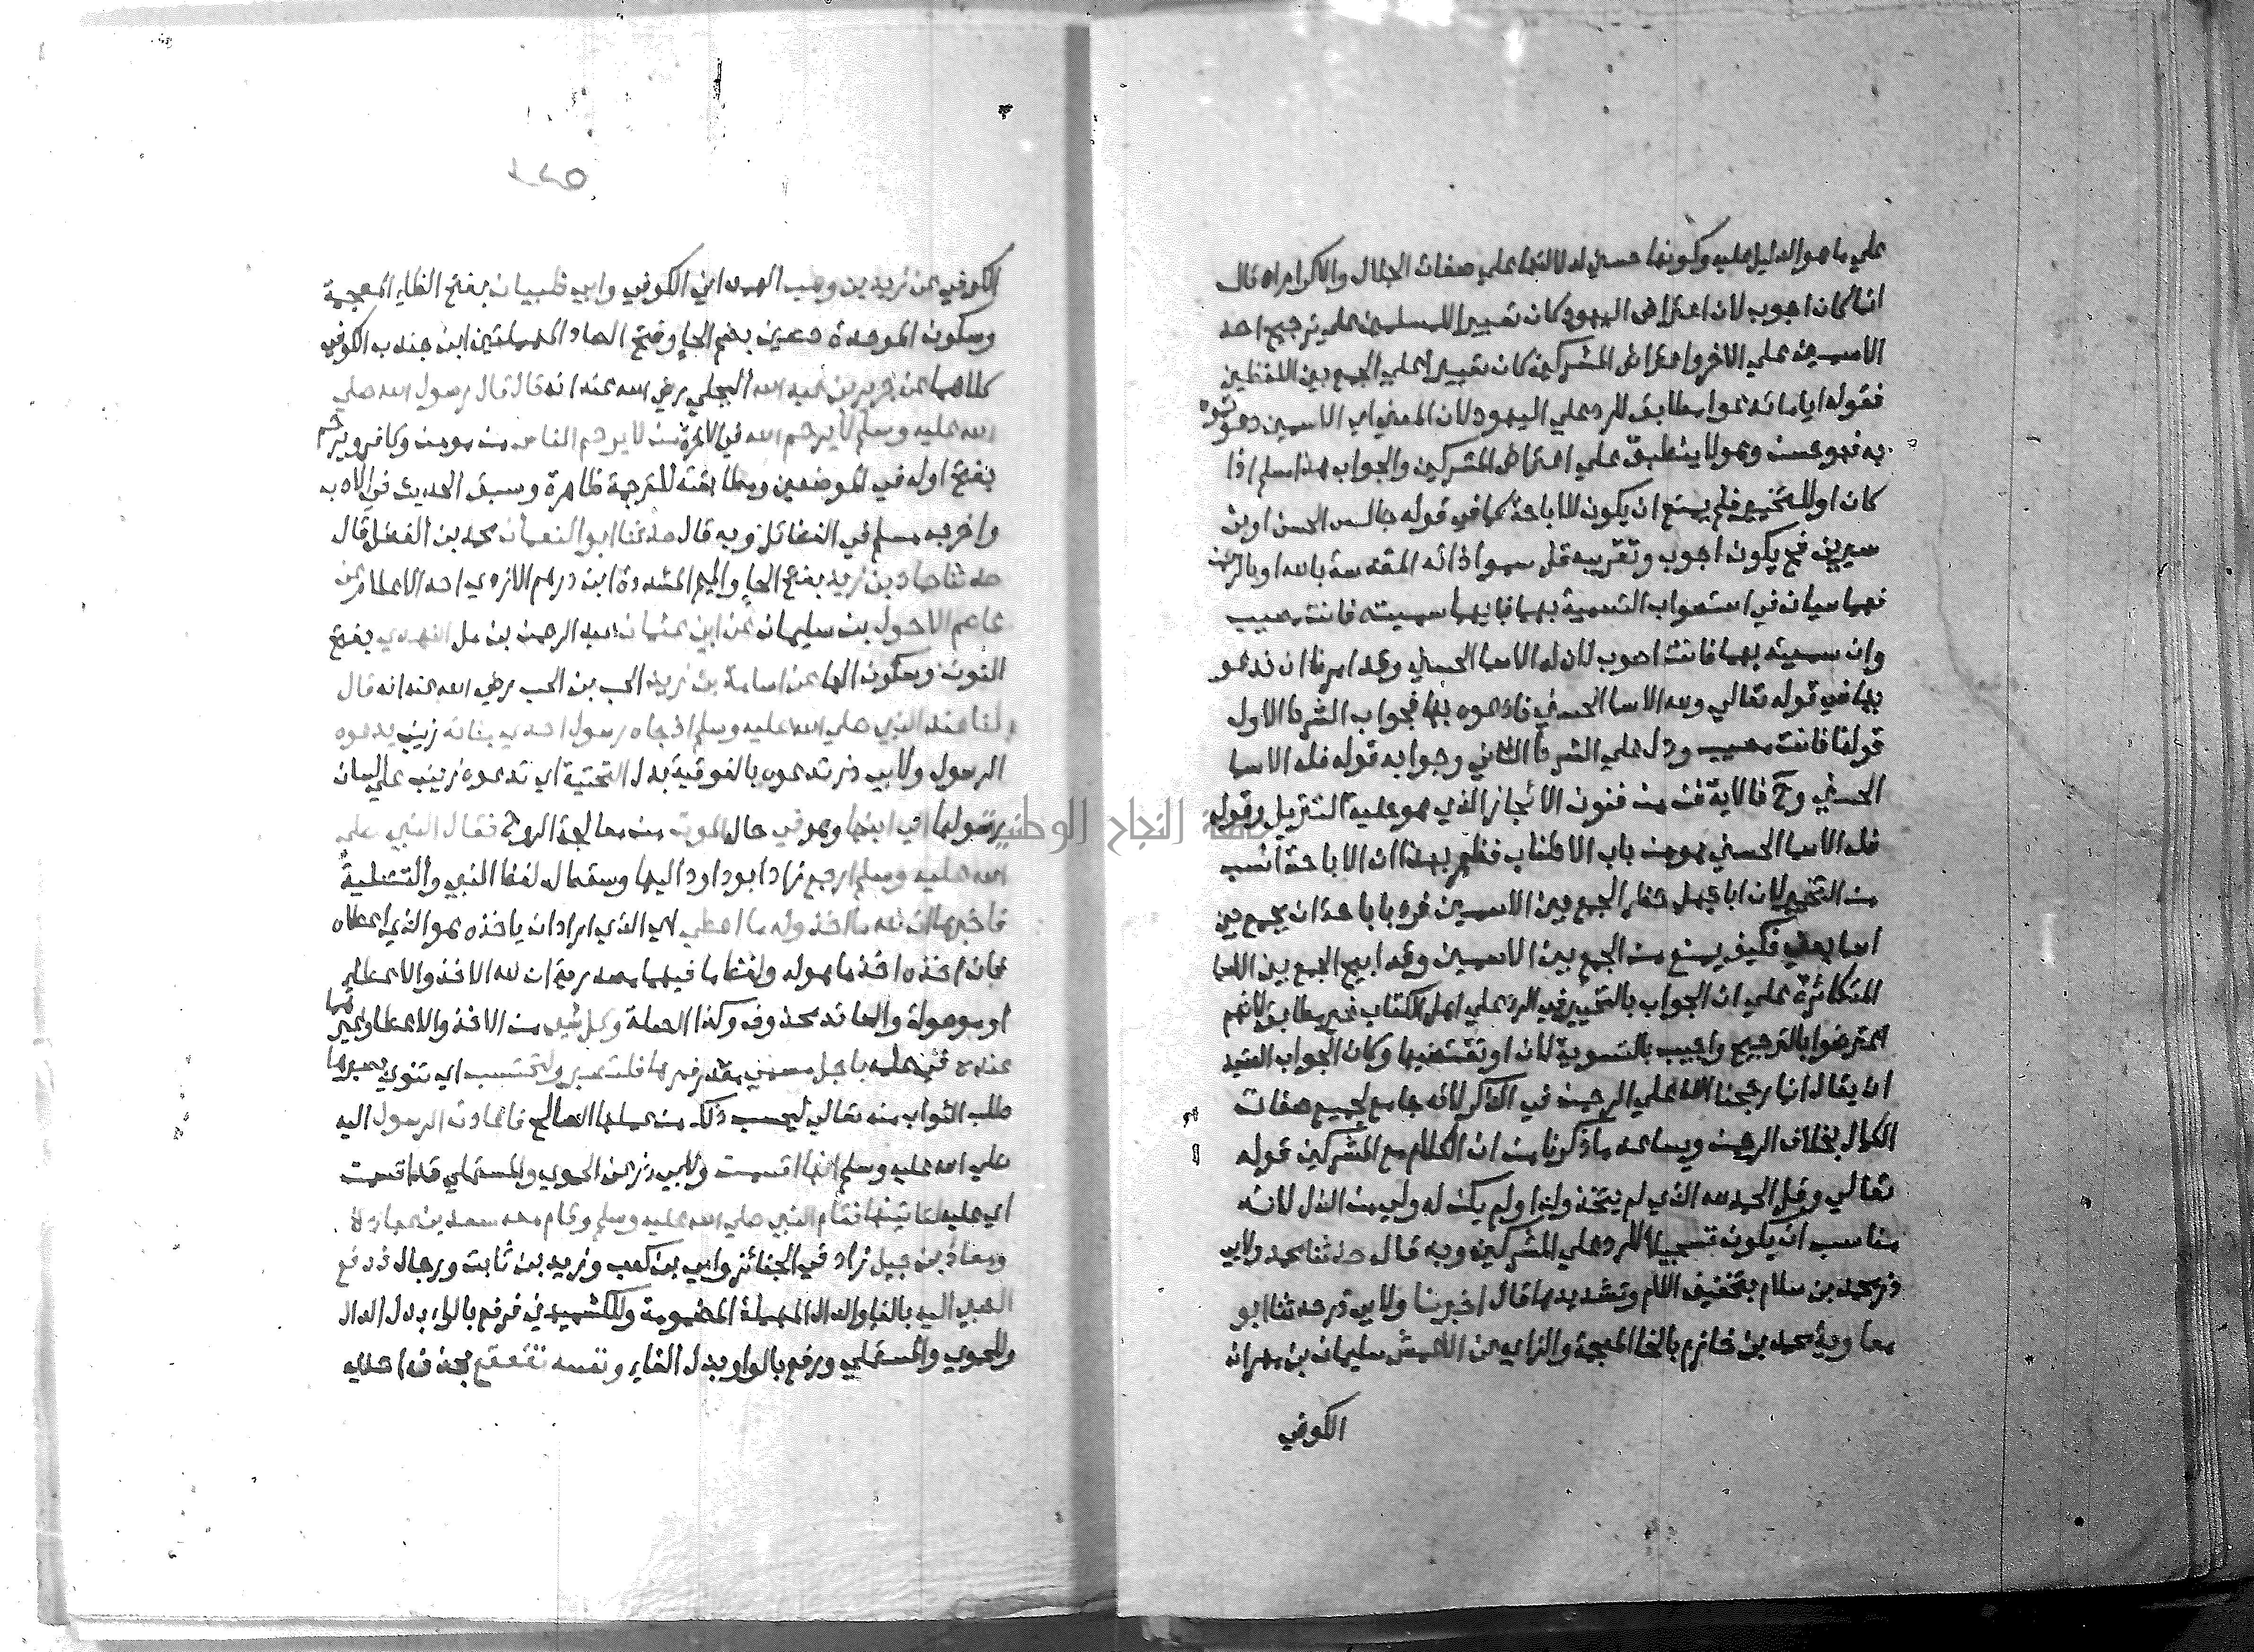 علي ما هو الدليل عليه وكونها حسني لدلالتها علي صفات الجلال والاكرام اه قال
انما كان اجوب لان اعتراض اليهود كان تعييرا للمسلمين علي ترجيح احد
الاسمين علي الاخر واعتراض المشركين كان تعييرا علي الجمع بين اللفظين
فقوله ايا ما تدعوا مطابق للرد علي اليهود لان المعني اي الاسمين دعوتموه
به فهو حسن وهو لا ينطبق علي اعتراض المشركين والجواب هذا مسلم اذا
كان او للتخيير فلم يمنع ان يكون للاباحة كما في قوله جالس الحسن او بن
سيرين فح يكون اجوب وتقريبه قل سموا ذاته المقدسة بالله او بالرحمن
فهما سيان في استصواب التسمية بهما فايهما سميته فانت مصيب
وان سميته بهما فانت اصوب لان له الاسما الحسني وقد امرنا ان ندعو
بها في قوله تعالي ولله الاسما الحسني فادعوه بها فجواب الشرط الاول
قولنا فانت مصيب ودل علي الشرط الثاني وجوابه قوله فله الاسما
الحسني وح فالاية فن من فنون الايجاز الذي هو حلية التنزيل وقوله
فله الاسما الحسني هو من باب الاطناب فظهر بهذا ان الاباحة انسب
من التخيير لان ابا جهل حظر الجمع بين الاسمين فرد باباحة ان يجمع بين
اسما يعني فكيف يمنع من الجمع بين الاسمين وقد ابيح الجمع بين الاسما
المتكاثرة علي ان الجواب بالتخيير في الرد علي اهل الكتاب غير مطابق لانهم
اعترضوا بالترجيح واجيب بالتسوية لان او تقتضيها وكان الجواب العتيد
ان يقال انما رجحنا الله علي الرحمن في الذكر لانه جامع لجميع صفات
الكمال بخلاف الرحمن ويساعد ما ذكرنا من ان الكلام مع المشركين قوله
تعالي وقل الحمد لله الذي لم يتخذ ولدا ولم يكن له ولي من الذل لانه
مناسب ان يكون تسجيلا للرد علي المشركين وبه قال حدثنا محمد ولابي
ذر محمد بن سلام بتخفيف اللام وتشديدها قال اخبرنا ولابي ذر حدثنا ابو
معاوية محمد بن خازم بالخا المعجمة والزاي عن الاعمش سليمان بن مهران
الكوفي
الكوفي عن زيد بن وهب الهمداني الكوفي وابي ظبيان بفتح الظاء المعجمة
وسكون الموحدة حصين بضم الحاء وفتح الصاد المهملتين ابن جندب الكوفي
كلاهما عن جرير بن عبد الله البجلي رضي الله عنه انه قال قال رسول الله صلي
الله عليه وسلم لا يرحم الله في الاخرة من لا يرحم الناس من مومن وكافر ويرحم
بفتح اوله في الموضعين ومطابقته للترجمة ظاهرة وسبق الحديث في الادب
واخرجه مسلم في الفضائل وبه قال حدثنا ابو النعمان محمد بن الفضل قال
حدثنا حماد بن زيد بفتح الحاء والميم المشددة ابن درهم الازدي احد الاعلام عن
عاصم الاحول بن سليمان عن ابي عثمان عبد الرحمن بن مل النهدي بفتح
النون وسكون الها عن اسامة بن زيد الحب بن الحب رضي الله عنه انه قال
كنا عند النبي صلي الله عليه وسلم اذ جاه رسول احدي بناته زينب يدعوه
الرسول ولابي ذر تدعوه بالفوقية بدل التحتية اي تدعوه زينب علي لسان
رسولها الي ابنها وهو في حال الموت من معالجة الروح فقال النبي صلي
الله عليه وسلم ارجع زاد ابو داود اليها وسقط له لفظ النبي والتصلية
فاخبرها ان لله ما اخذ وله ما اعطي اي الذي اراد ان ياخذه هو الذي اعطاه
فان اخذه اخذ ما هو له ولفظ ما فيهما مصدرية ان لله الاخذ والاعطاء
او موصولة والعائد محذوف وكذا الصلة وكل شي من الاخذ والاعطاء وغيرهما
عنده في علمه باجل مسمي مقدر فمرها فلتصبر ولتحتسب اي تنوي بصبرها
طلب الثواب منه تعالي ليحسب ذلك من عملها الصالح فاعادت الرسول اليه
صلي الله عليه وسلم انها اقسمت ولابي ذر عن الحموي والمستملي قد اقسمت
اي عليه لتاتينها فقام النبي صلي الله عليه وسلم وقام معه سعد بن عبادة
ومعاذ بن جبل زاد في الجنائز وابي بن كعب وزيد بن ثابت ورجال فدفع
الصبي اليه بالفاء والدال المهملة المضمومة وللكشميهني فرفع بالراء بدل الدال
وللحموي والمستملي ورفع بالواو بدل الفاء ونفسه تقعقع بحذف احدي